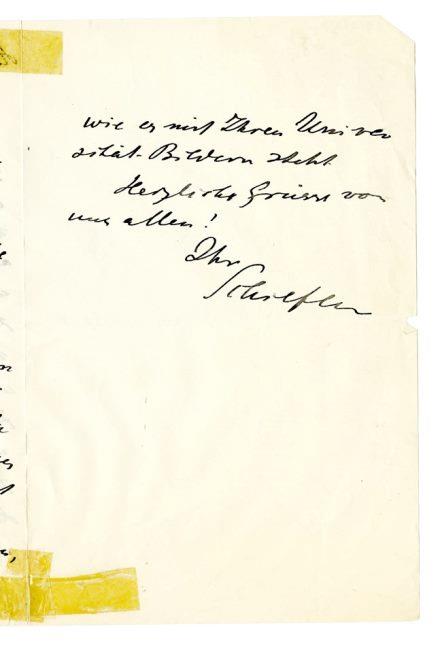 wie es mit Ihren Univer
sität-Bildern steht.
Herzliche Grüsse von
uns allen!
Ihr
Scheffler